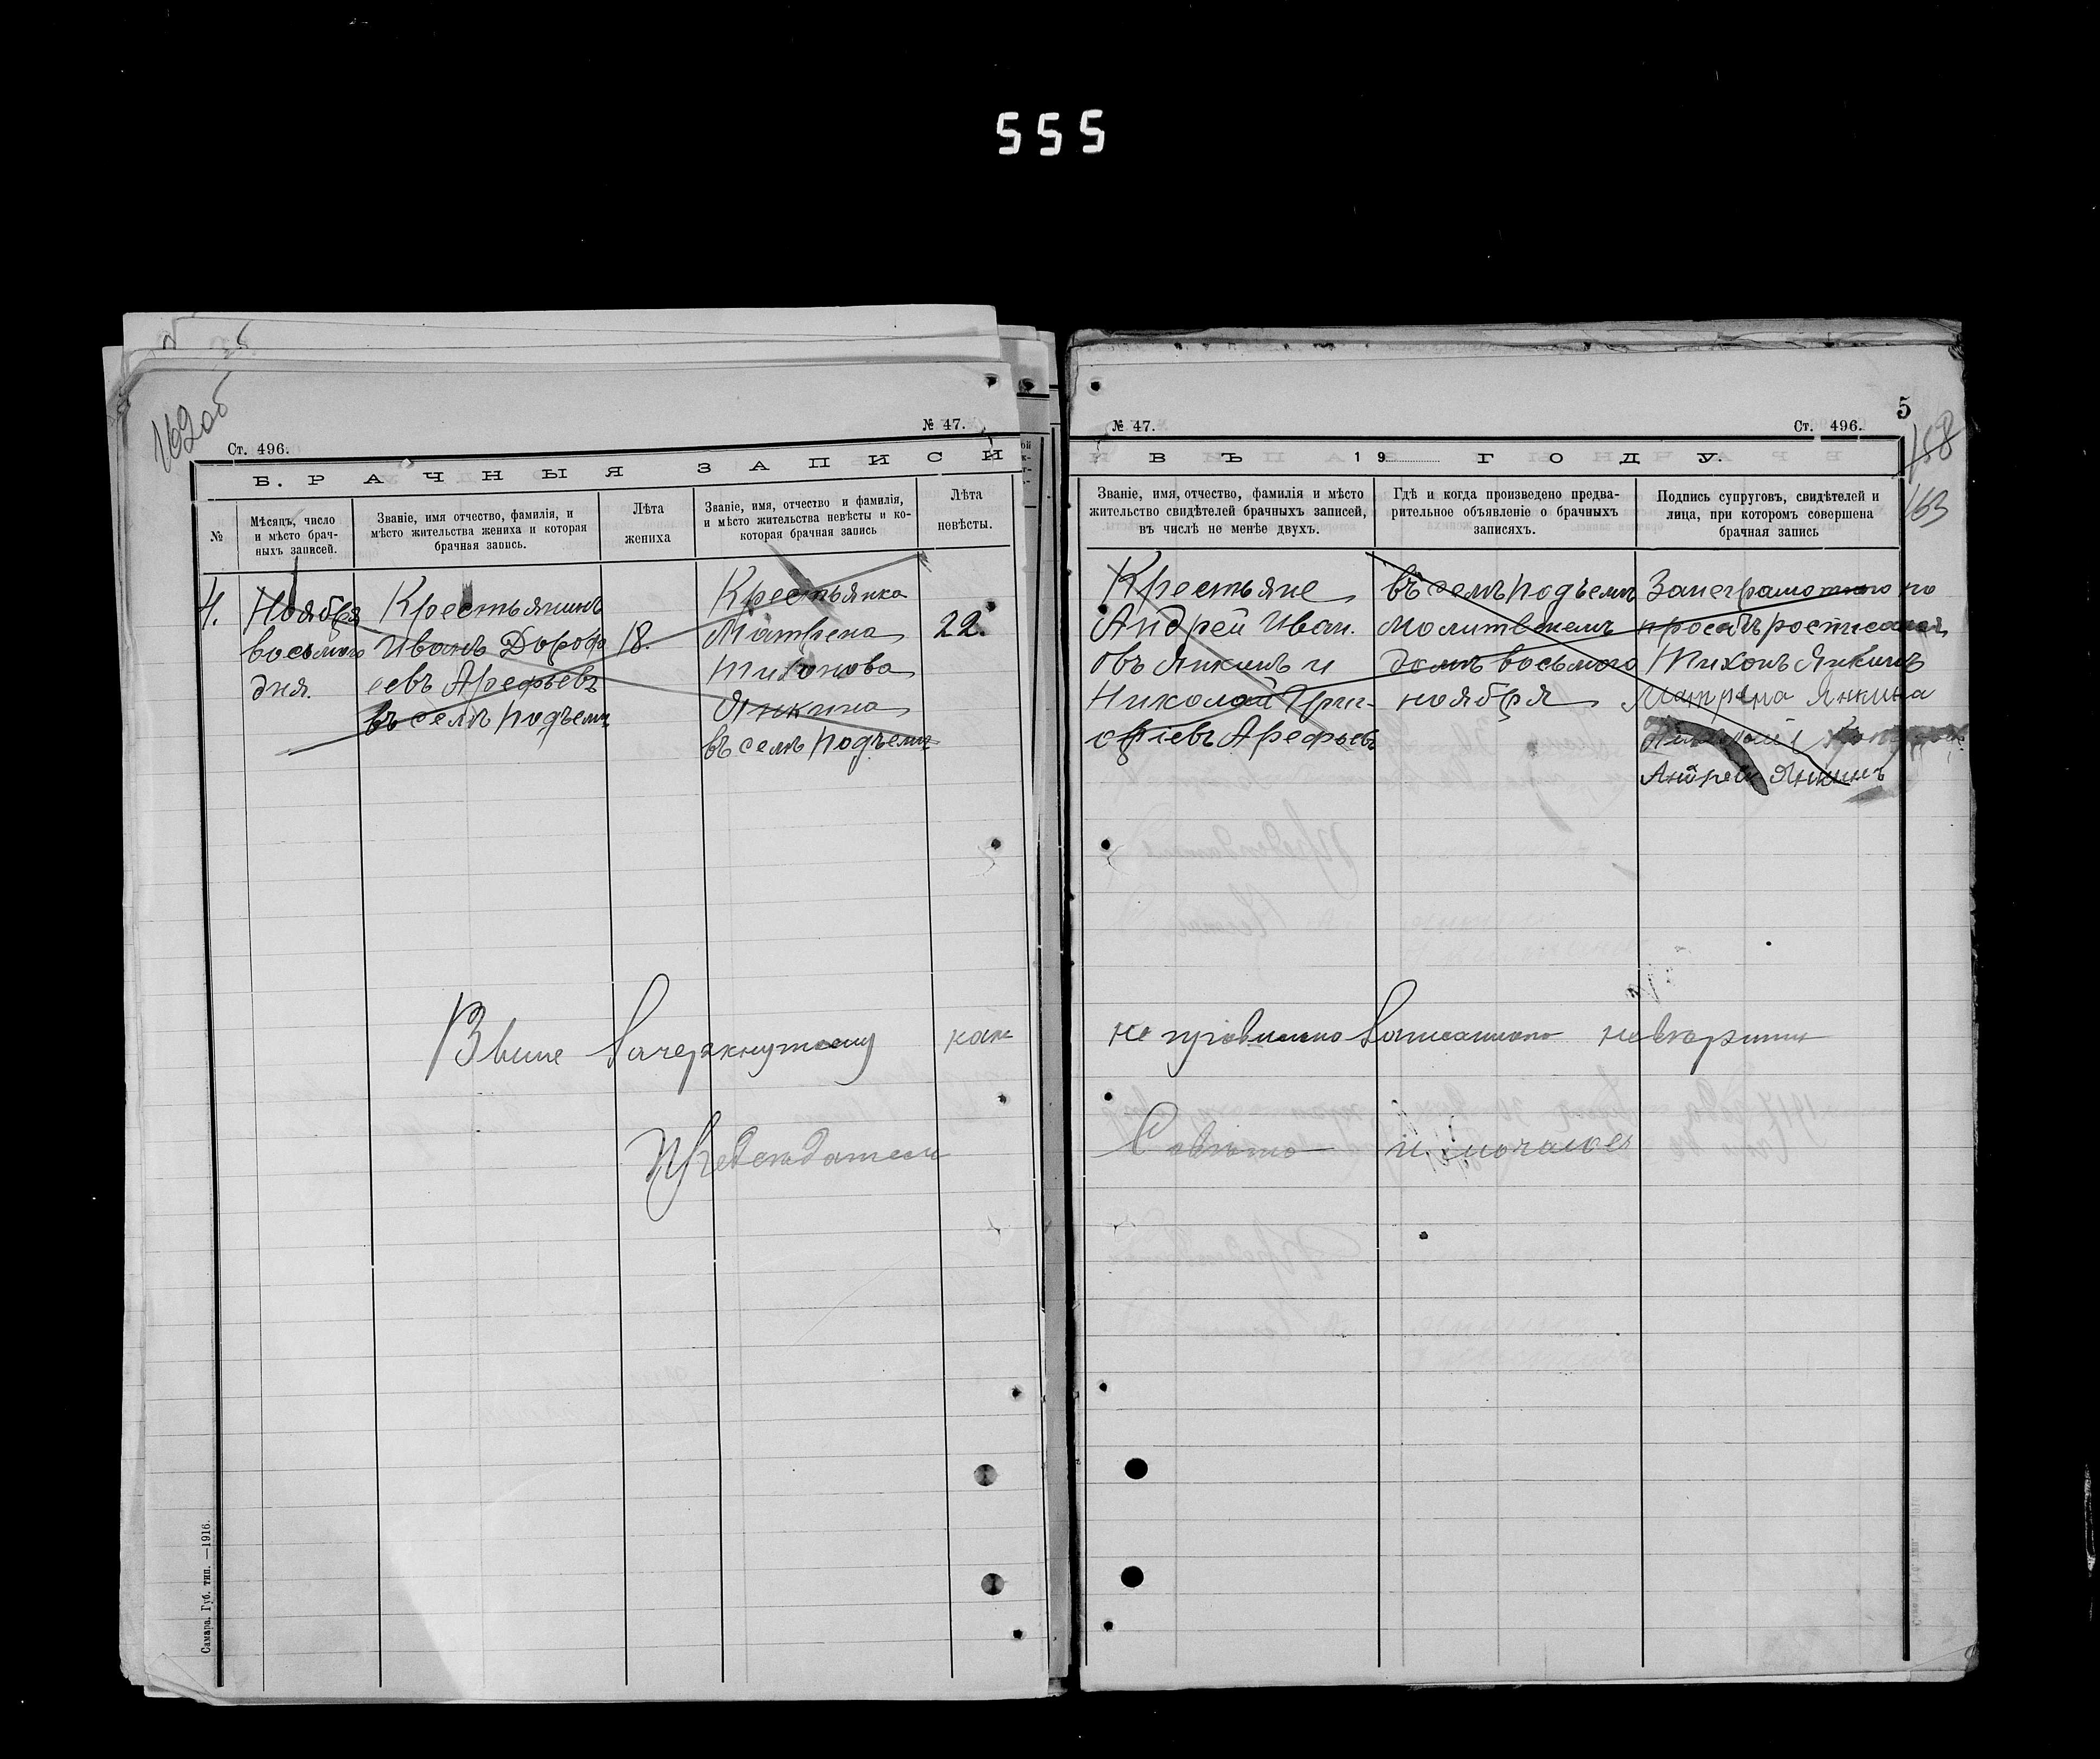 555
162об
№ 47.
Ст. 496.
БРАЧНЫЯ ЗАПИСИ
№
Мѣсяцъ, число и мѣсто брач-
ныхъ записей.
Званіе, имя отчество, фамилія, и
мѣсто жительства жениха и которая
брачная запись.
Лѣта
жениха
Званіе, имя, отчество и фамилія,
и мѣсто жительства невѣсты и ко-
которая брачная запись
Лѣта
невѣсты.
4.
Ноября
восьмого
дня.
Крестьянинъ
Иванъ Дороф
еевъ Арефьевъ
въ селѣ подъемъ
18.
Крестьянка
Матрена
Тихонова
Янкина
въ селѣ подъемъ
22.
Выше зачеркнутому как
Председатель
Самара. Губ. тип. —1916.
5
№ 47.
Ст. 496.
158
163
ВЪ 19 ГОДУ.
Званіе, имя, отчество, фамилія и мѣсто
жительство свидѣтелей брачныхъ записей,
въ числѣ не менѣе двухъ.
Гдѣ и когда произведено предва-
рительное объявленіе о брачныхъ
записяхъ.
Подпись супруговъ, свидѣтелей и
лица, при которомъ совершена
брачная запись
Крестьяне
Андрей Иван.
овъ Янкинъ и
Николай Григ-
орiевъ Арефьевъ
въ селѣ подъемъ
молитвеномъ
домѣ восьмого
ноября
За неграмотного по
прозбѣ росписался
Тихонъ Янкинъ
Матрена Янкина
Андрей Янкинъ
не правильно записанного не верить
Совета